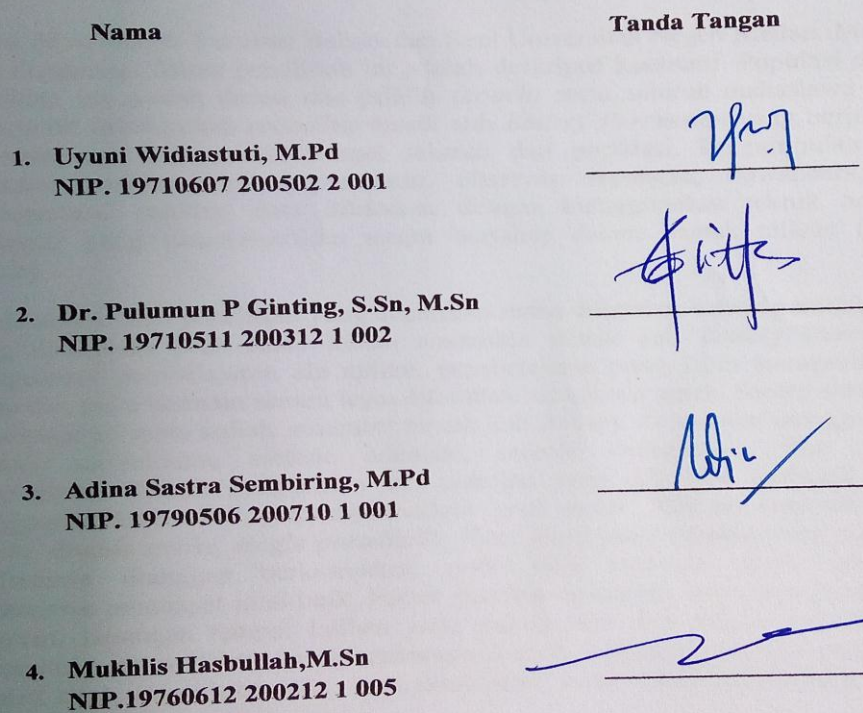 Nama Tanda Tangan
1. Uyuni Widiastuti, M.Pd
NIP. 19710607 200502 2 001
2. Dr. Pulumun P Ginting, S.Sn, M.Sn
NIP. 19710511 200312 1 002
3. Adina Sastra Sembiring, M.Pd
NIP. 19790506 200710 1 001
4. Mukhlis Hasbullah,M.Sn
NIP.19760612 200212 1 005